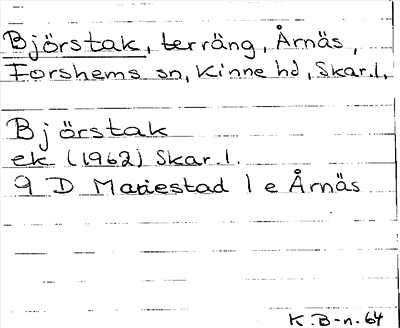 Björstak, terräng, Årnäs,
Forshems sn, Kinne hd, Skar.l.
Björstak
ek (1962) Skar.l.
9 D Mariestad 1 e Årnäs
K.B-n.64